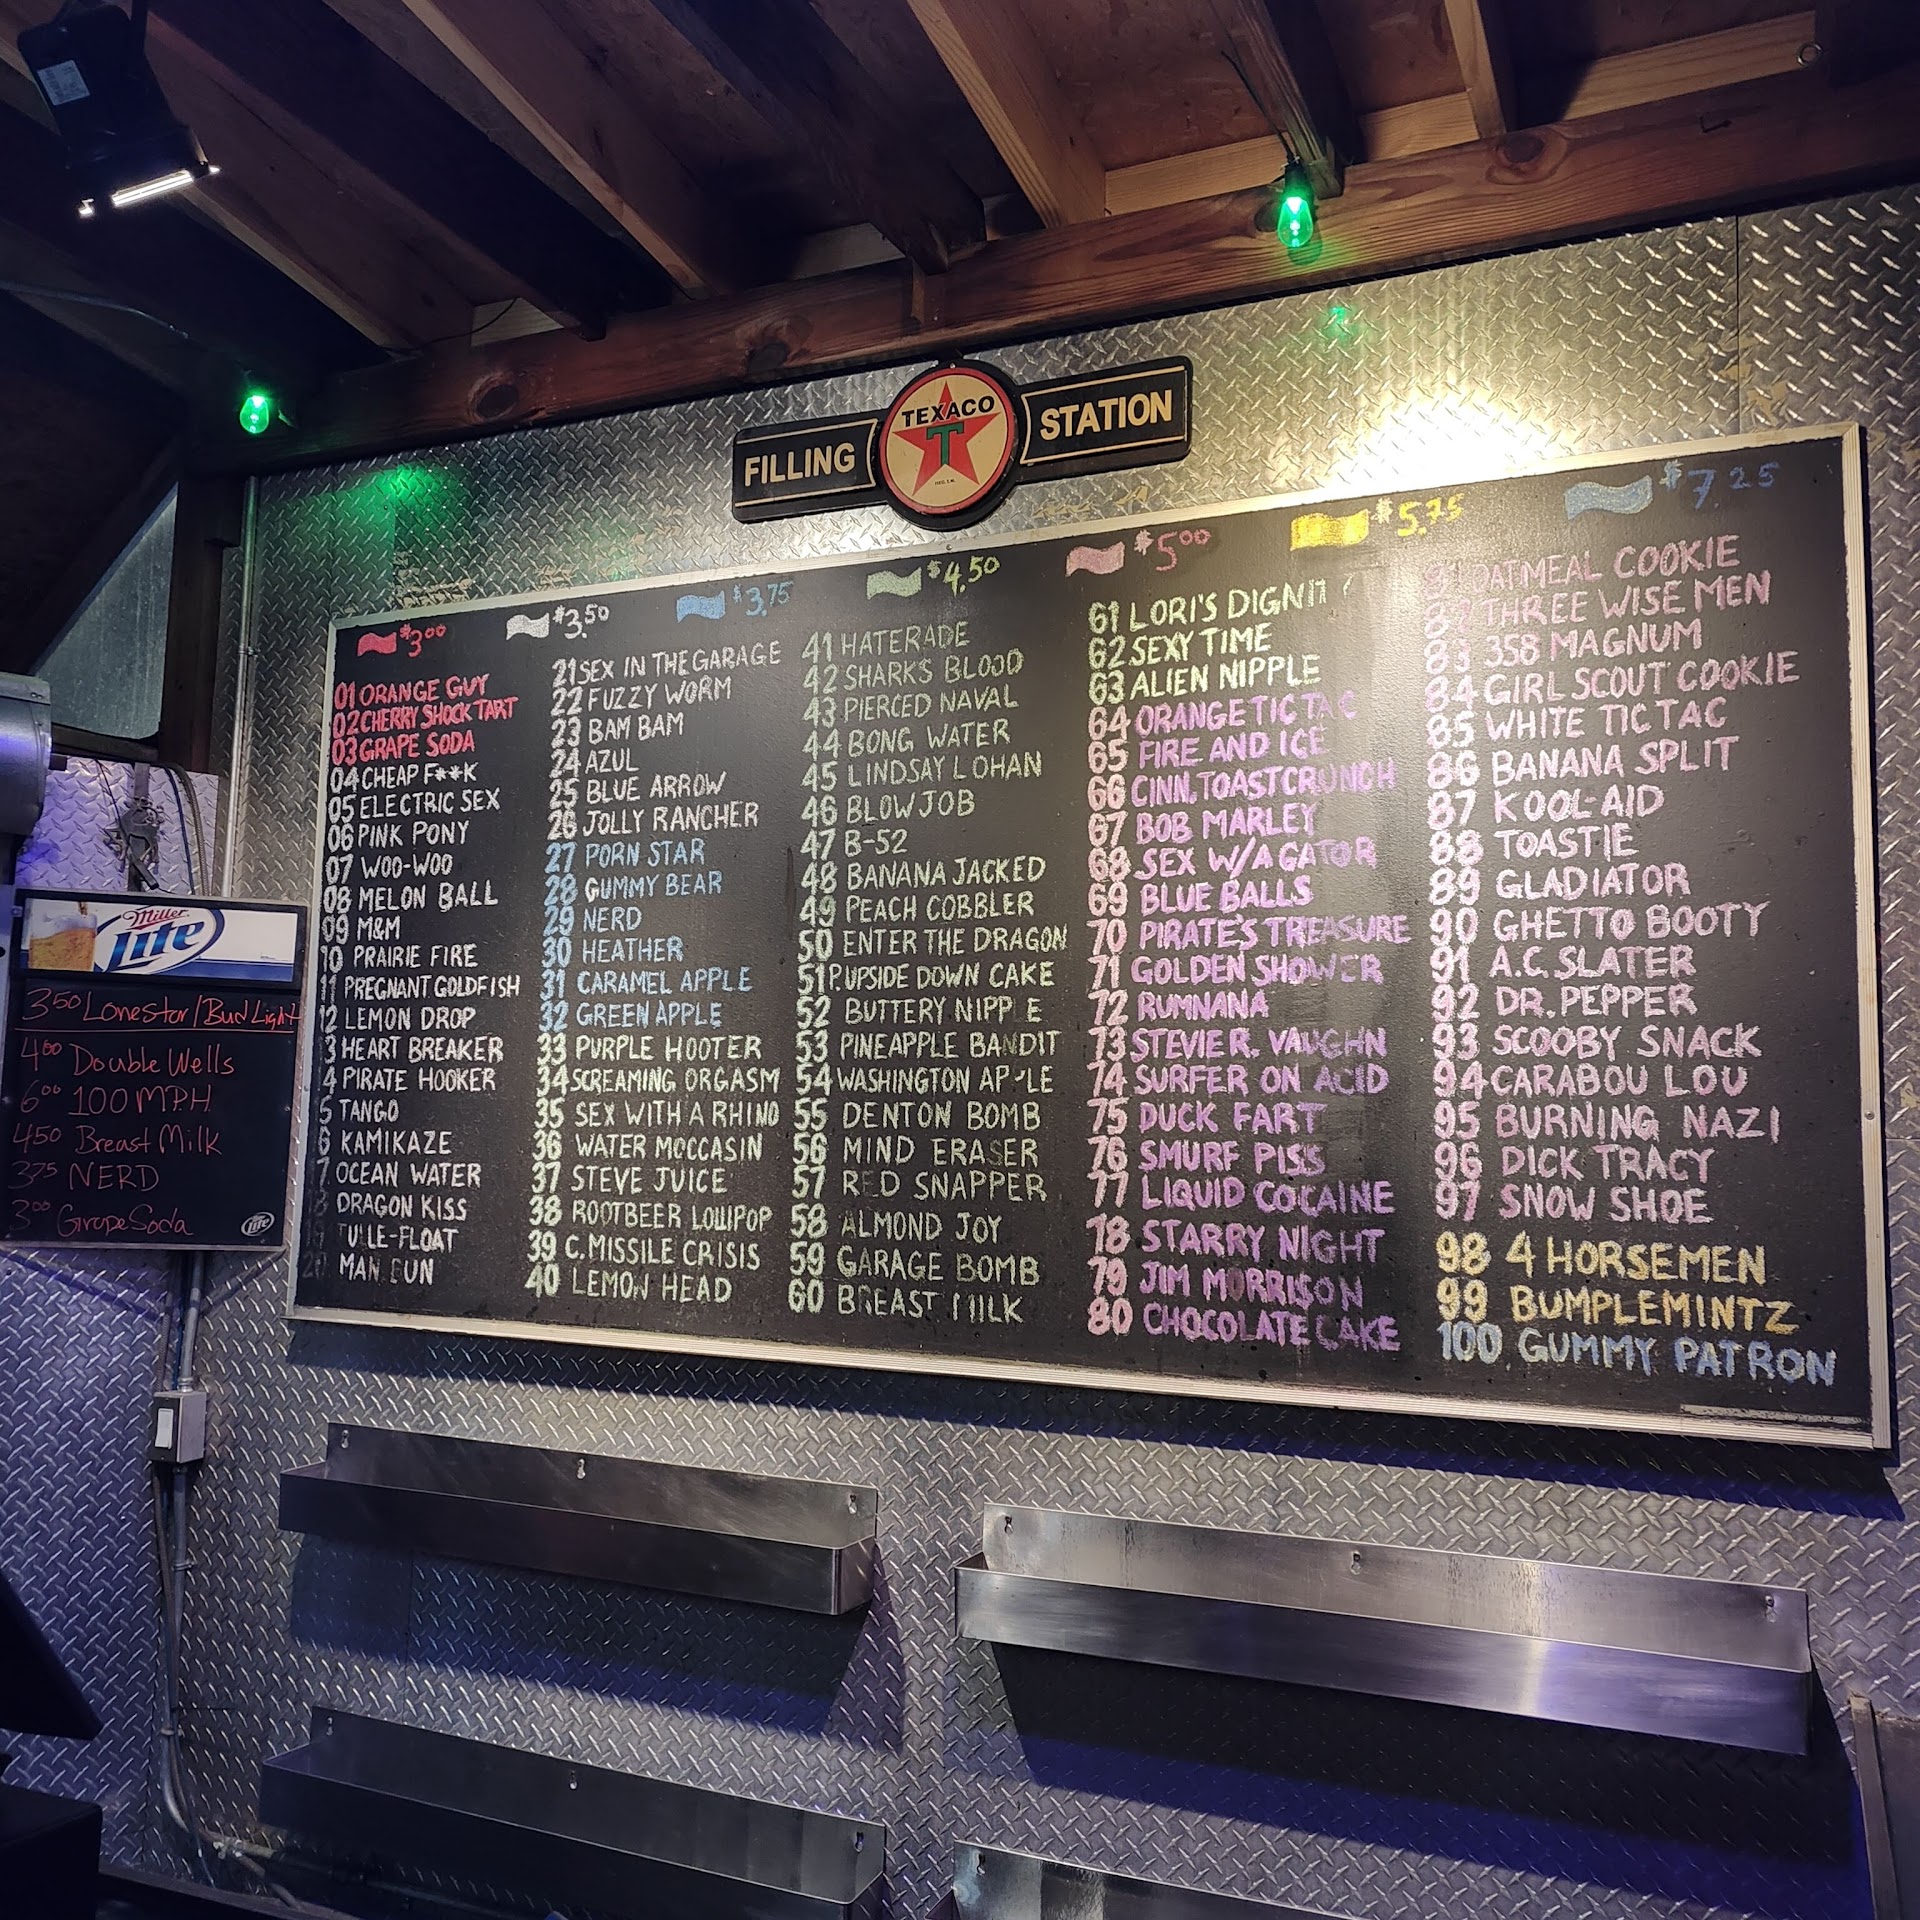 FILLING TEXACO STATION
T
Miller
Lite
350 Lonestar/Bud Light
4.00 Double Wells
6.00 100 MPH
450 Breast Milk
375 NERD
3.00 Grape Soda
Lite
$3.00
$3.50
$3.75
$4.50
$5.00
$5.75
$7.25
01 ORANGE GUY
02 CHERRY SHOCK TART
03 GRAPE SODA
04 CHEAP F**K
05 ELECTRIC SEX
06 PINK PONY
07 WOO-WOO
08 MELON BALL
09 M&M
10 PRAIRIE FIRE
11 PREGNANT GOLDFISH
12 LEMON DROP
13 HEART BREAKER
14 PIRATE HOOKER
5 TANGO
6 KAMIKAZE
7 OCEAN WATER
8 DRAGON KISS
9 TU LE-FLOAT
20 MAN BUN
21 SEX IN THE GARAGE
22 FUZZY WORM
23 BAM BAM
24 AZUL
25 BLUE ARROW
26 JOLLY RANCHER
27 PORN STAR
28 GUMMY BEAR
29 NERD
30 HEATHER
31 CARAMEL APPLE
32 GREEN APPLE
33 PURPLE HOOTER
34 SCREAMING ORGASM
35 SEX WITH A RHINO
36 WATER MOCCASIN
37 STEVE JUICE
38 ROOTBEER LOLLIPOP
39 C. MISSILE CRISIS
40 LEMON HEAD
41 HATERADE
42 SHARKS BLOOD
43 PIERCED NAVAL
44 BONG WATER
45 LINDSAY LOHAN
46 BLOW JOB
47 B-52
48 BANANA JACKED
49 PEACH COBBLER
50 ENTER THE DRAGON
51 P. UPSIDE DOWN CAKE
52 BUTTERY NIPPLE
53 PINEAPPLE BANDIT
54 WASHINGTON APPLE
55 DENTON BOMB
56 MIND ERASER
57 RED SNAPPER
58 ALMOND JOY
59 GARAGE BOMB
60 BREAST MILK
61 LORI'S DIGNIT
62 SEXY TIME
63 ALIEN NIPPLE
64 ORANGE TIC TAC
65 FIRE AND ICE
66 CINN. TOAST CRUNCH
67 BOB MARLEY
68 SEX W/A GATOR
69 BLUE BALLS
70 PIRATE'S TREASURE
71 GOLDEN SHOWER
72 RUMNANA
73 STEVIE R. VAUGHN
74 SURFER ON ACID
75 DUCK FART
76 SMURF PISS
77 LIQUID COCAINE
78 STARRY NIGHT
79 JIM MORRISON
80 CHOCOLATE CAKE
81 OATMEAL COOKIE
82 THREE WISE MEN
83 358 MAGNUM
84 GIRL SCOUT COOKIE
85 WHITE TIC TAC
86 BANANA SPLIT
87 KOOL-AID
88 TOASTIE
89 GLADIATOR
90 GHETTO BOOTY
91 A.C. SLATER
92 DR. PEPPER
93 SCOOBY SNACK
94 CARABOU LOU
95 BURNING NAZI
96 DICK TRACY
97 SNOW SHOE
98 4 HORSEMEN
99 BUMPLEMINTZ
100 GUMMY PATRON